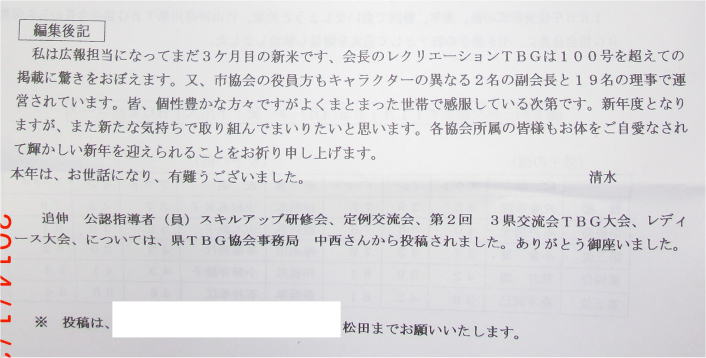 編集後記
私は広報担当になってまだ３ケ月目の新米です、会長のレクリエーションＴＢＧは１００号を超えての
掲載に驚きをおぼえます。又、市協会の役員方もキャラクターの異なる２名の副会長と１９名の理事で運
営されています。皆、個性豊かな方々ですがよくまとまった世帯で感服している次第です。新年度となり
ますが、また新たな気持ちで取り組んでまいりたいと思います。各協会所属の皆様もお体をご自愛なされ
て輝かしい新年を迎えられることをお祈り申し上げます。
本年は、お世話になり、有難うございました。 清水
追伸 公認指導者（員）スキルアップ研修会、定例交流会、第２回 ３県交流会ＴＢＧ大会、レディ
ース大会、については、県ＴＢＧ協会事務局 中西さんから投稿されました。ありがとう御座いました。
※ 投稿は、 松田までお願いいたします。